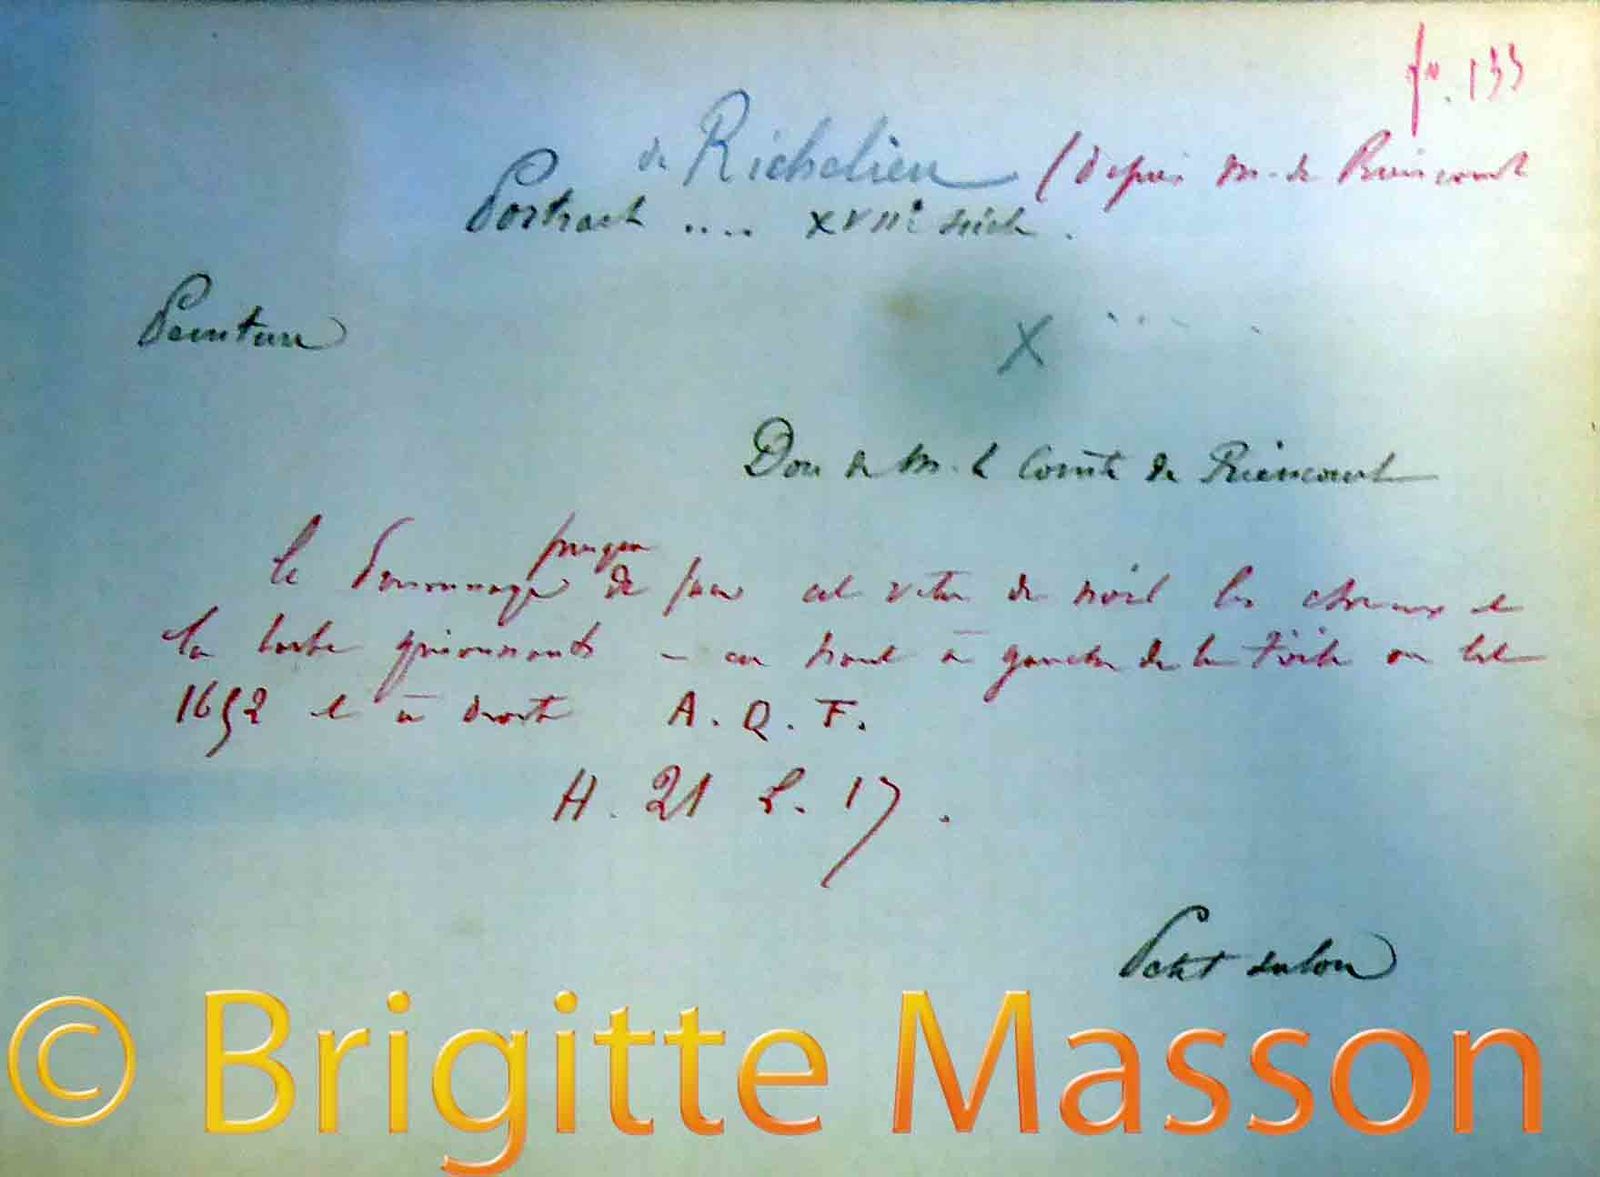 fo. 133
de Richelieu (depuis M. de Riencourt
Portrait .... XVIIe siècle.
Peinture
X
Don de M. le Comte de Riencourt
presque
Le personnage de face est vêtu de noir les cheveux et
la barbe grisonnants – en haut à gauche de la toile on lit
1652 et à droite A. Q. F.
H. 21 L. 17.
Petit salon
© Brigitte Masson